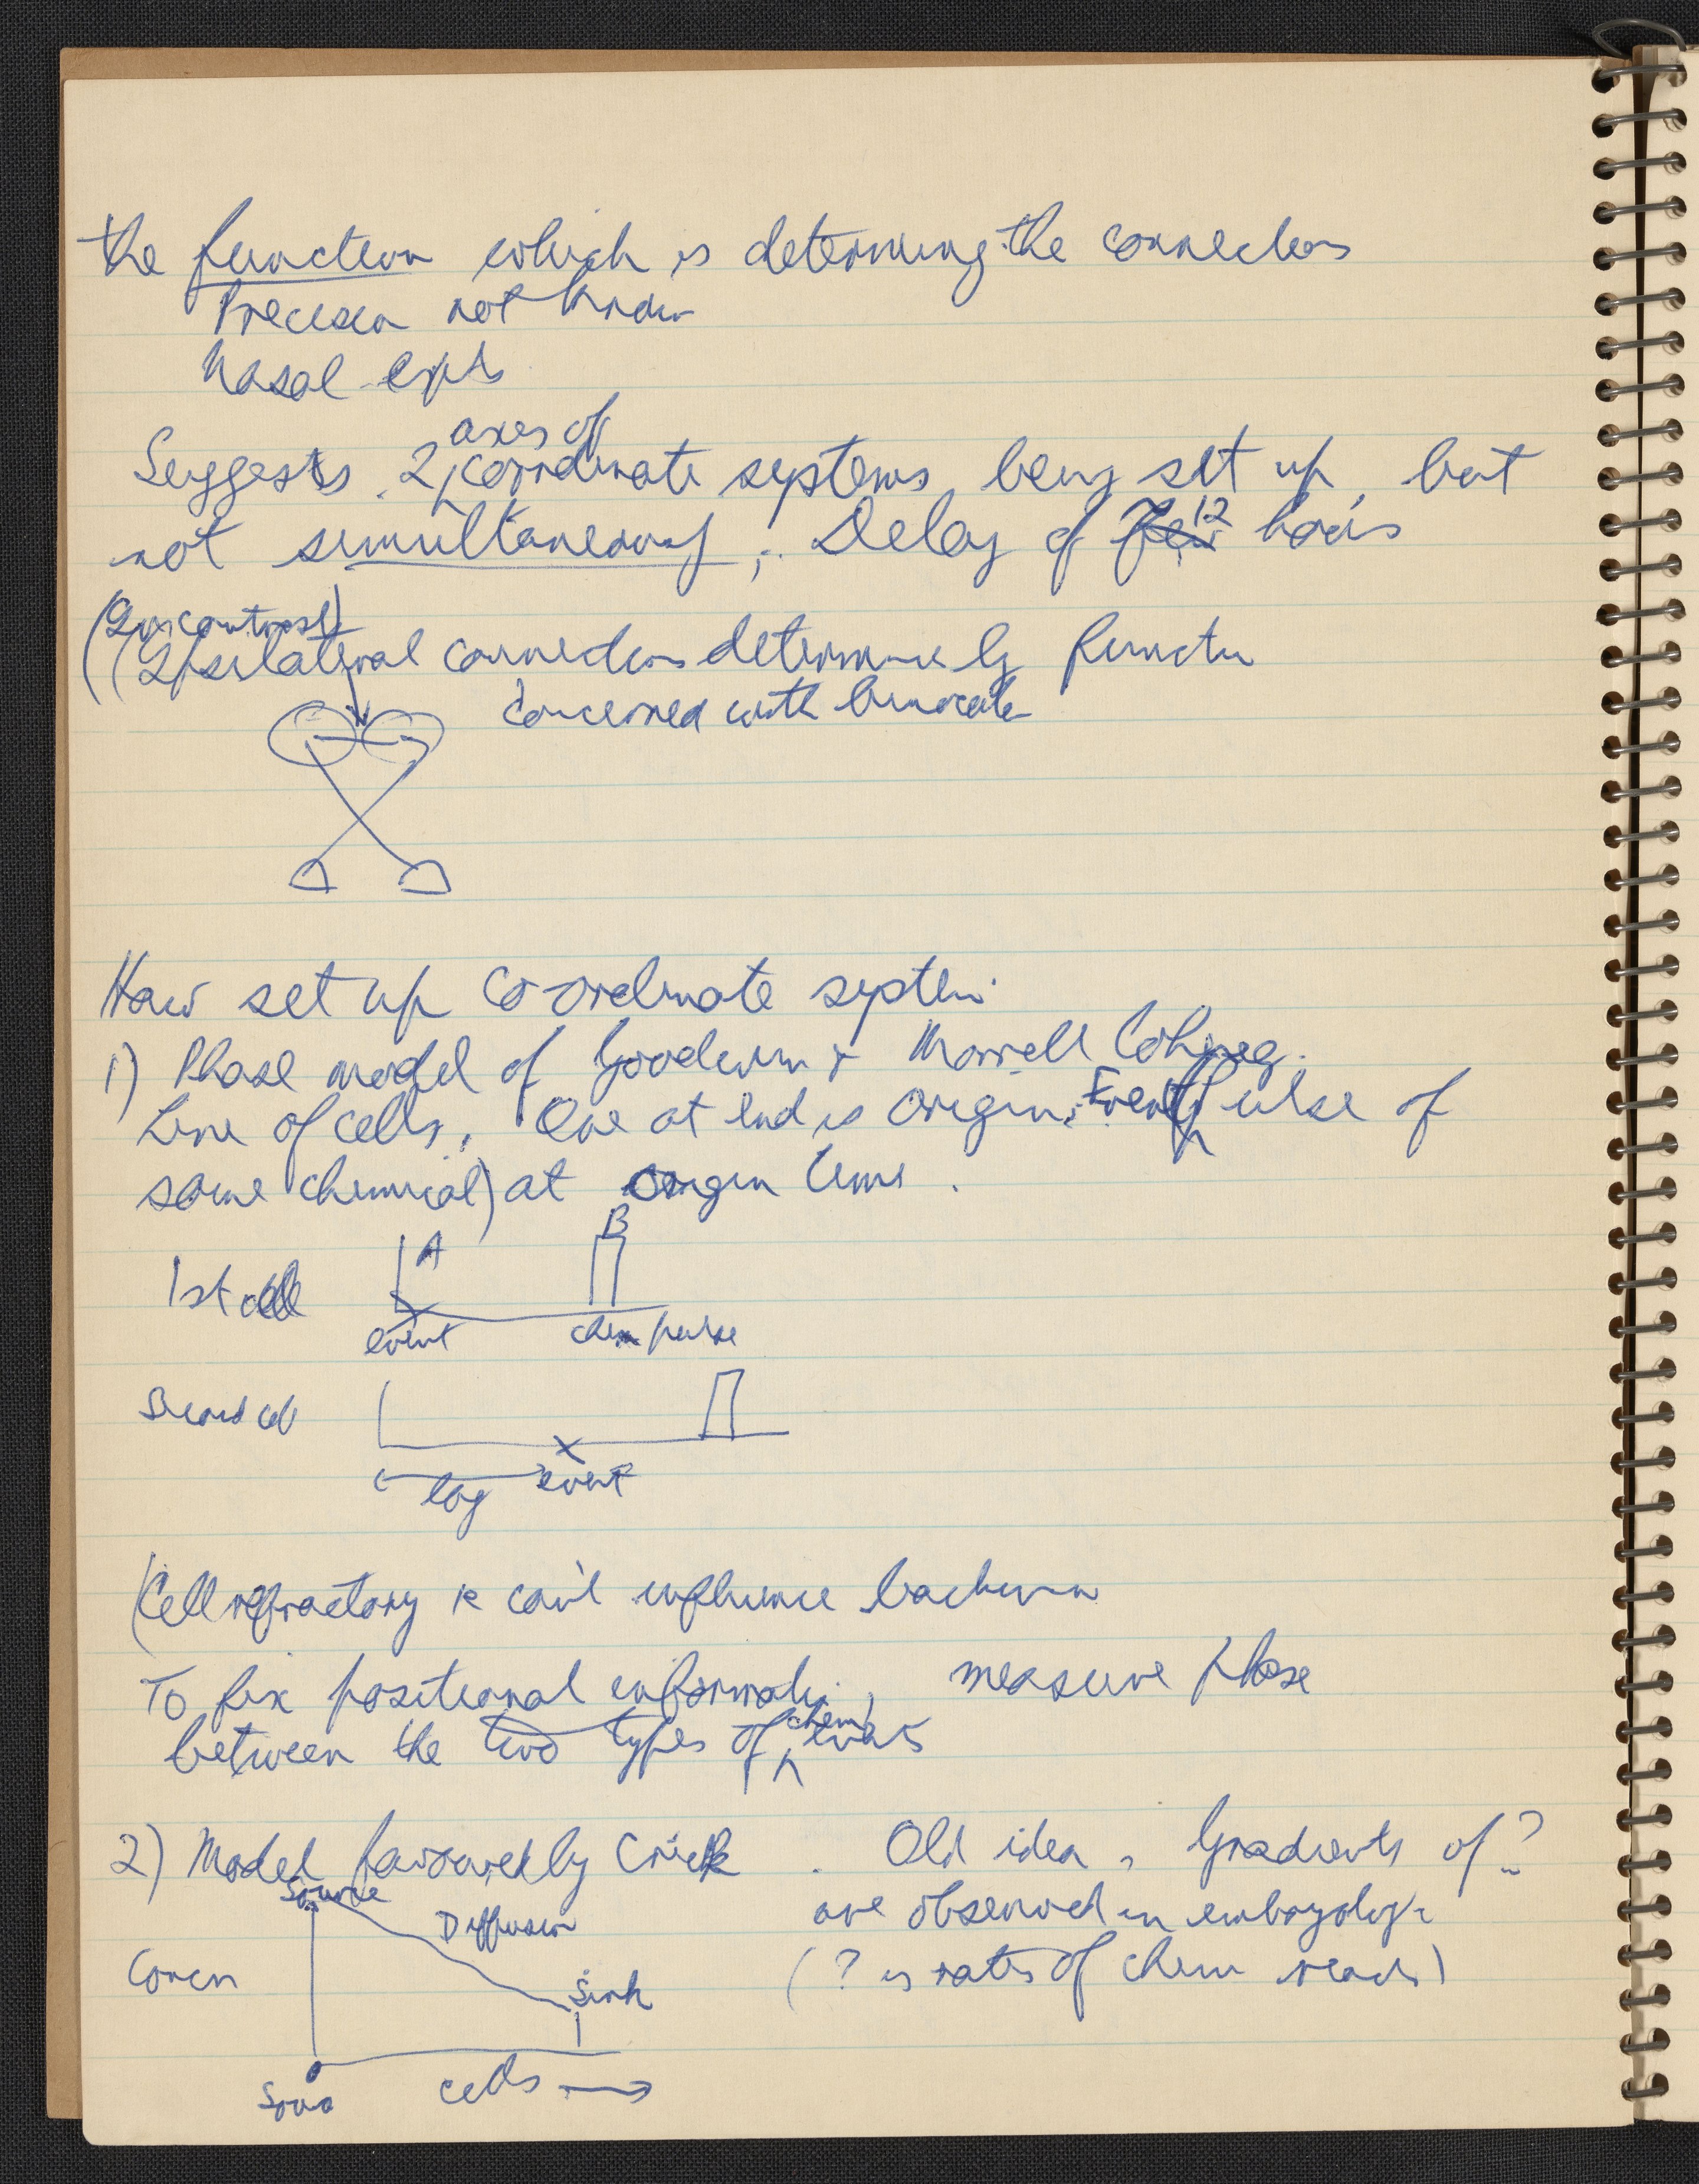 the function which is determining the connections
Precision not known
Nasal expts
axes of
Suggests 2 coordinate systems being set up, but
not simultaneously; Delay of 12 hours
(In contrast)
((Ipsilateral connection determine by function
concerned with binocular
How set up co-ordinate system
1) Phase model of Goodwin & Morrell Cohen eg.
Line of cells. One at end is origin. Event (pulse of
some chemical) at origin time.
B
A
1st cell
event chem pulse
Second cell
lag event
(Cell refractory & can't influence backwards
To fix positional information, measure phase
between the two types of chem events
2) Model favoured by Crick. Old idea, Gradients of ?
Source
are observed in embryology
Diffusion
Concn Sink (? is rates of chem reacts)
cells →